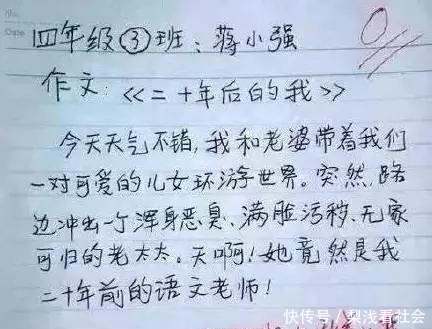 四年级③班:蒋小强
0
作文:《二十年后的我》
今天天气不错,我和老婆带着我们
一对可爱的儿女环游世界。突然,路
边冲出一个浑身恶臭、满脸污秽、无家
可归的老太太。天啊!她竟然是我
二十年前的语文老师!
快传号/梨浅看社会